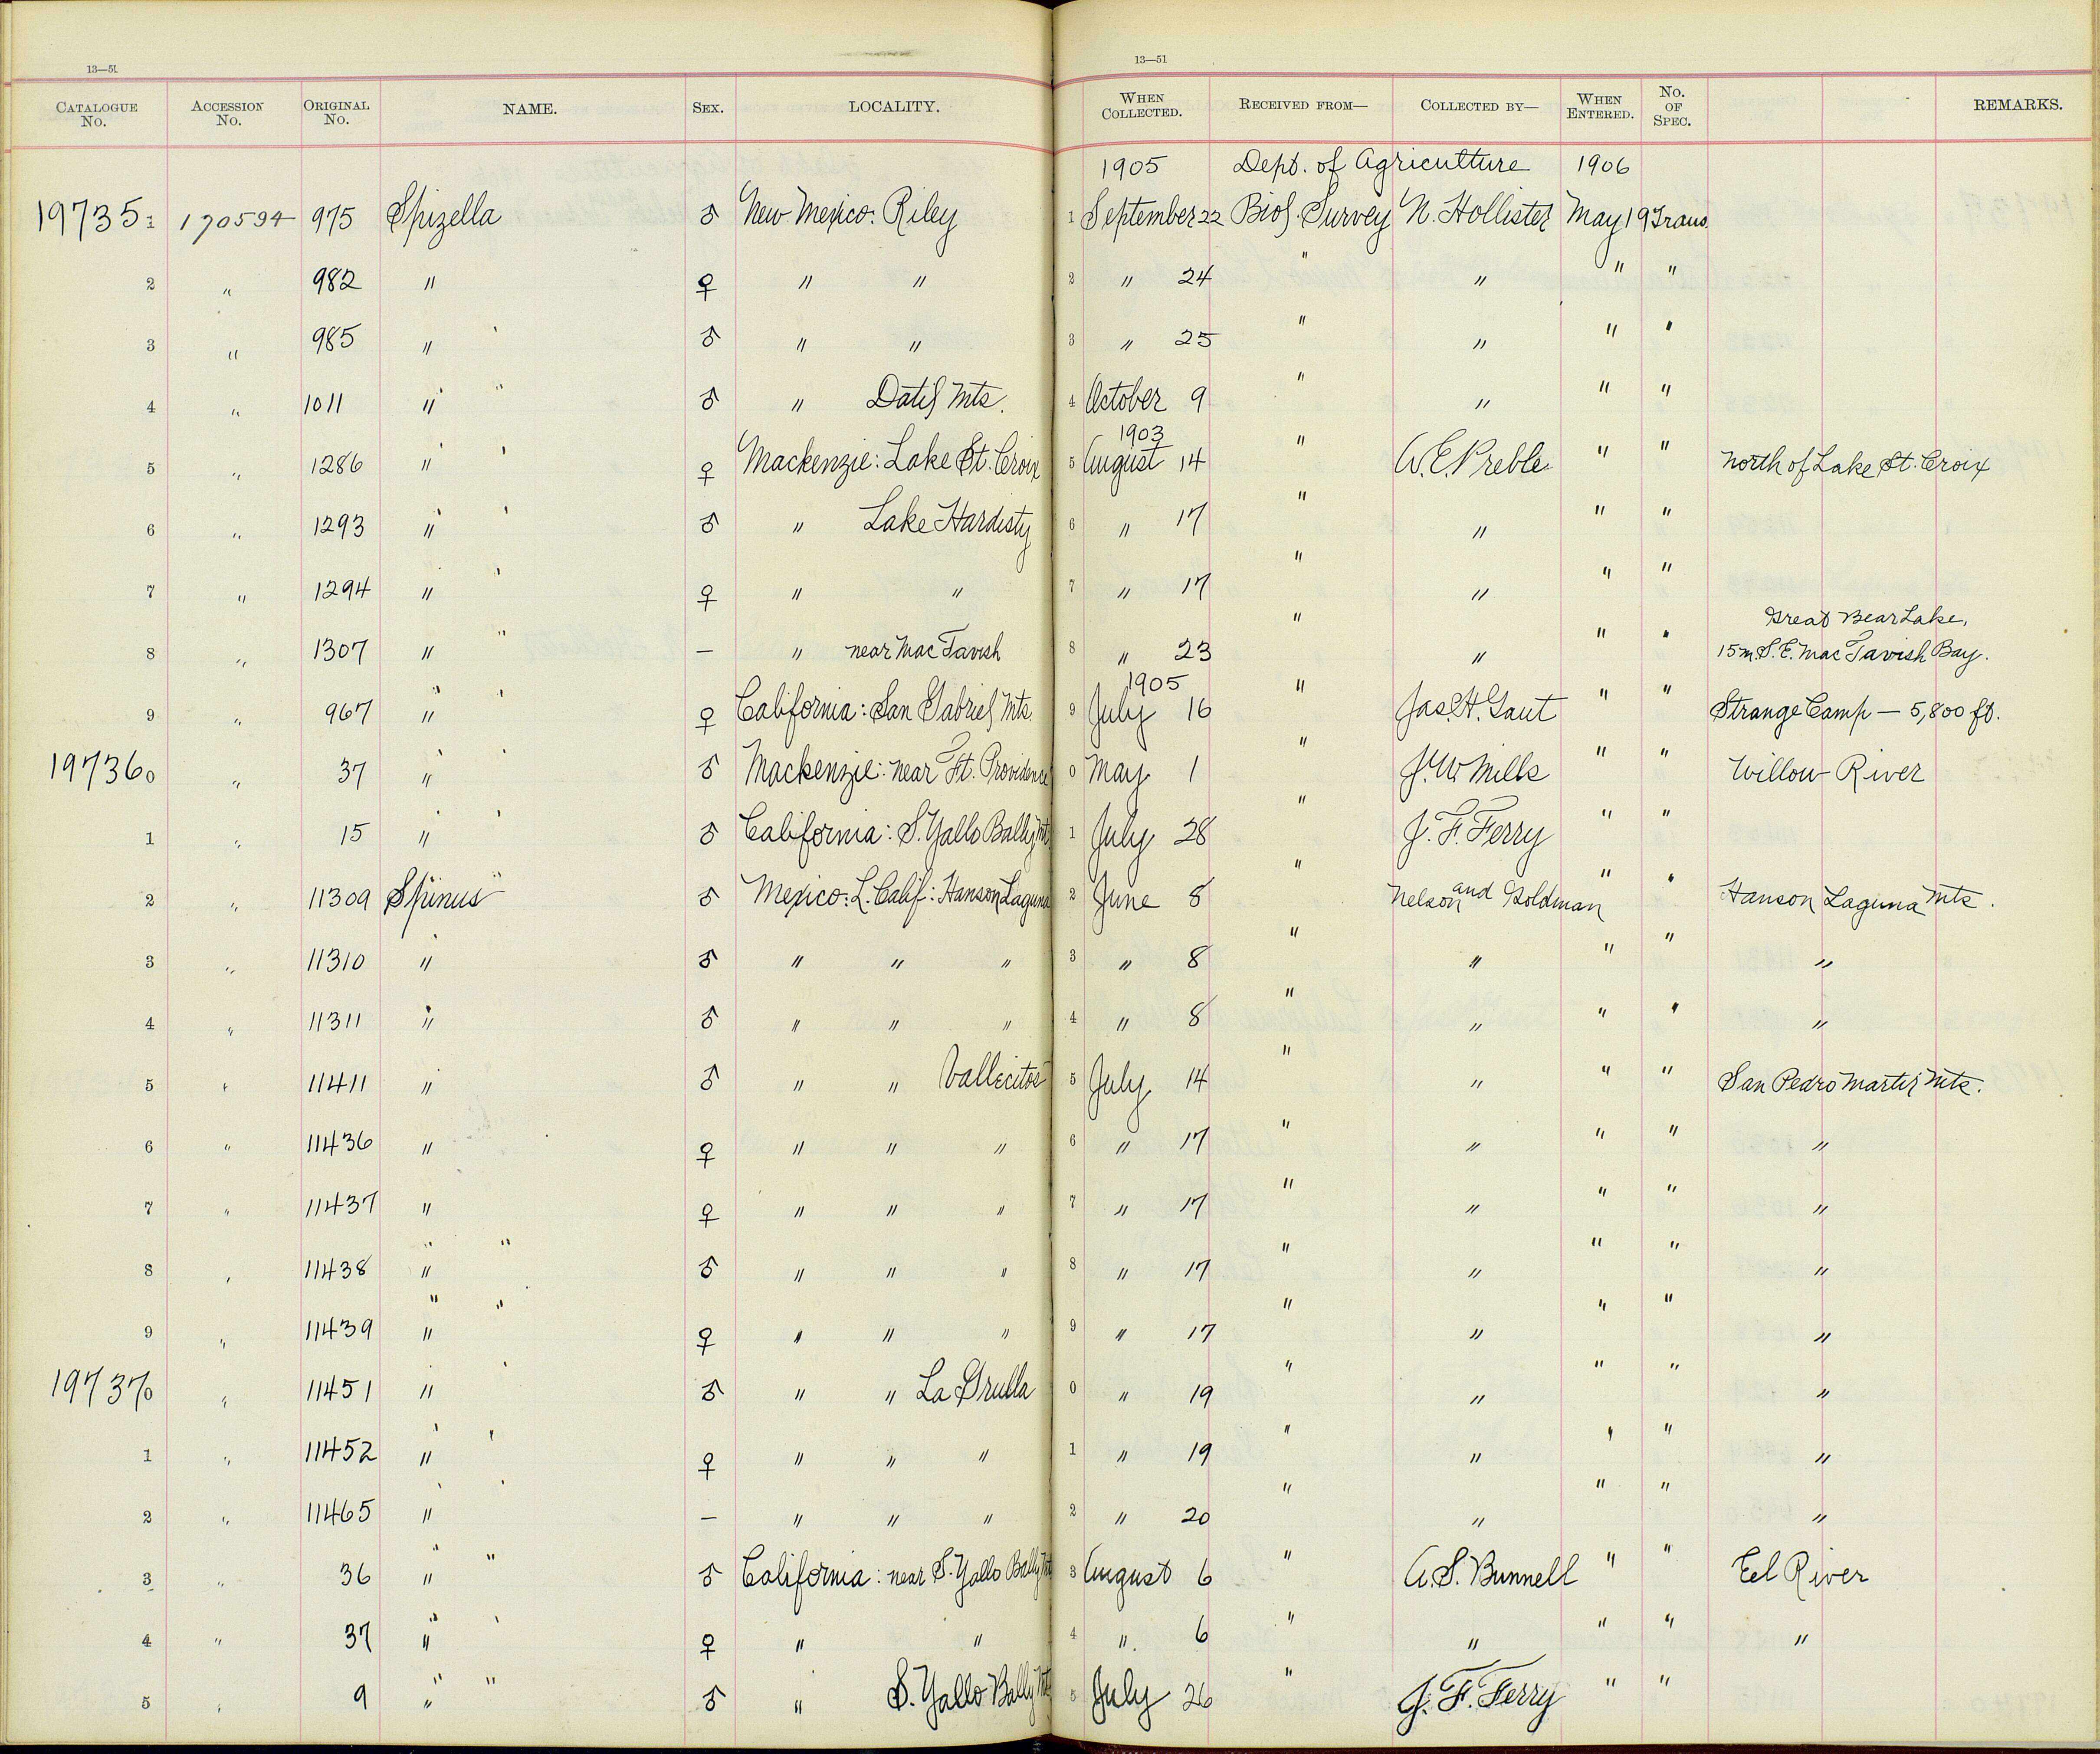 13—51 13—51
CATALOGUE No. ACCESSION No. ORIGINAL No. NAME. SEX. LOCALITY. WHEN COLLECTED. RECEIVED FROM— COLLECTED BY— WHEN ENTERED. No. OF SPEC. REMARKS.
1905 Dept. of Agriculture 1906
197351 170594 975 Spizella ♂ New Mexico: Riley 1 September 22 Biol. Survey N. Hollister May 19 Trans.
2 " 982 " ♀ " " 2 " 24 " " " "
3 " 985 " ♂ " " 3 " 25 " " " "
4 " 1011 " " ♂ " Datil Mts. 4 October 9 " " " "
1903
5 " 1286 " ♀ Mackenzie: Lake St. Croix 5 August 14 " A. E. Preble " " North of Lake St. Croix
6 " 1293 " ♂ " Lake Hardisty 6 " 17 " " " "
7 " 1294 " ♀ " " 7 " 17 " " " "
Great Bear Lake,
8 " 1307 " " — " near MacTavish 8 " 23 " " " " 15 m. S.E. MacTavish Bay.
1905
9 " 967 " ♀ California: San Gabriel Mts. 9 July 16 " Jas. H. Gaut " " Strange Camp — 5,800 ft.
197360 " 37 " ♂ Mackenzie: near Ft. Providence 0 May 1 " J. W. Mills " " Willow River
1 " 15 " ♂ California: S. Yallo Bally Mts 1 July 28 " J. F. Ferry " "
2 " 11309 Spinus " ♂ Mexico: L. Calif: Hanson Laguna 2 June 8 " Nelson and Goldman " " Hanson Laguna Mts.
3 " 11310 " ♂ " " " 3 " 8 " " " " "
4 " 11311 " ♂ " " " 4 " 8 " " " " "
5 " 11411 " ♂ " " Vallecitos 5 July 14 " " " " San Pedro Martir Mts.
6 " 11436 " ♀ " " " 6 " 17 " " " " "
7 " 11437 " ♀ " " " 7 " 17 " " " " "
8 " 11438 " " ♂ " " " 8 " 17 " " " " "
9 " 11439 " " ♀ " " " 9 " 17 " " " " "
197370 " 11451 " ♂ " " La Grulla 0 " 19 " " " " "
1 " 11452 " ♀ " " " 1 " 19 " " " " "
2 " 11465 " — " " " 2 " 20 " " " " "
3 " 36 " " ♂ California: near S. Yallo Bally Mts 3 August 6 " A. S. Bunnell " " Eel River
4 " 37 " ♀ " " 4 " 6 " " " " "
5 " 9 " " ♂ " S. Yallo Bally Mts 5 July 26 " J. F. Ferry " "